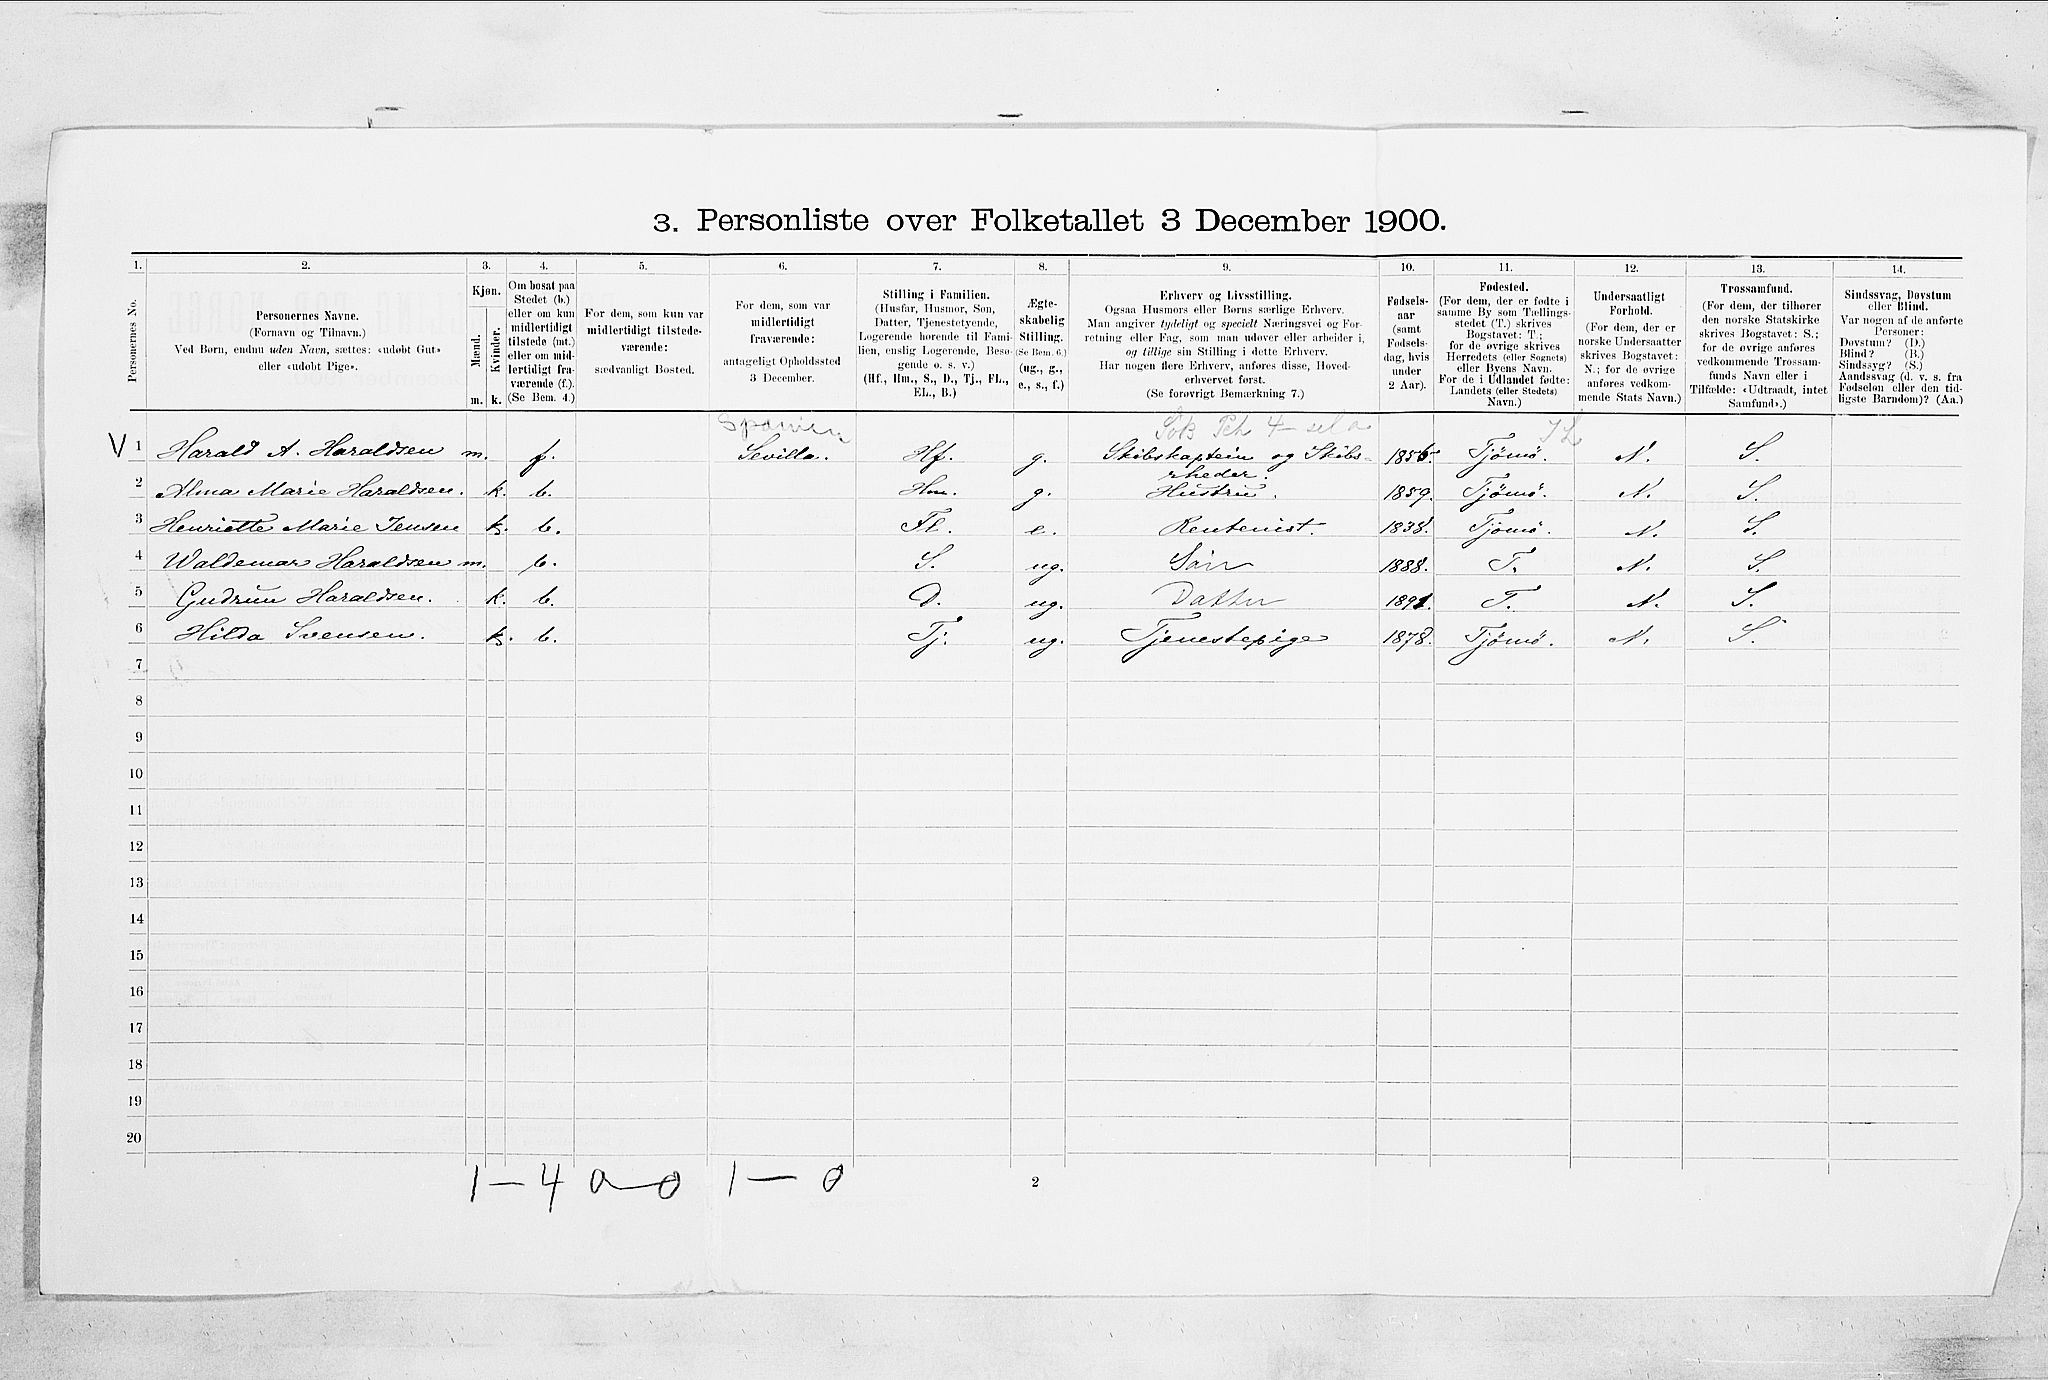 3. Personliste over Folketallet 3 December 1900.
1. 2. 3. 4. 5. 6. 7. 8. 9. 10. 11. 12. 13. 14.
Personernes No.
Personernes Navne.
(Fornavn og Tilnavn.)
Ved Børn, endnu uden Navn, sættes: «udøbt Gut»
eller «udøbt Pige».
Kjøn.
Mænd.
Kvinder.
m. k.
Om bosat paa
Stedet (b.)
eller om kun
midlertidigt
tilstede (mt.)
eller om mid-
lertidigt fra-
værende (f.).
(Se Bem. 4.)
For dem, som kun var
midlertidigt tilstede-
værende:
sædvanligt Bosted.
For dem, som var
midlertidigt
fraværende:
antageligt Opholdssted
3 December.
Stilling i Familien.
(Husfar, Husmor, Søn,
Datter, Tjenestetyende,
Logerende hørende til Fami-
lien, enslig Logerende, Besø-
gende o. s. v.)
(Hf., Hm., S., D., Tj., FL.,
EL., B.)
Ægte-
skabelig
Stilling.
(Se Bem. 6.)
(ug., g.,
e., s., f.)
Erhverv og Livsstilling.
Ogsaa Husmors eller Børns særlige Erhverv.
Man angiver tydeligt og specielt Næringsvei og For-
retning eller Fag, som man udøver eller arbeider i,
og tillige sin Stilling i dette Erhverv.
Har nogen flere Erhverv, anføres disse, Hoved-
erhvervet først.
(Se forøvrigt Bemærkning 7.)
Fødsels-
aar
(samt
Fødsels-
dag, hvis
under
2 Aar).
Fødested.
(For dem, der er fødte i
samme By som Tællings-
stedet (T.) skrives
Bogstavet: T.;
for de øvrige skrives
Herredets (eller Sognets)
eller Byens Navn.
For de i Udlandet fødte:
Landets (eller Stedets)
Navn.)
Undersaatligt
Forhold.
(For dem, der er
norske Undersaatter
skrives Bogstavet:
N.; for de øvrige
anføres vedkom-
mende Stats Navn.)
Trossamfund.
(For dem, der tilhører
den norske Statskirke
skrives Bogstavet: S.;
for de øvrige anføres
vedkommende Trossam-
funds Navn eller i
Tilfælde: «Udtraadt, intet
Samfund».)
Sindssvag, Døvstum
eller Blind.
Var nogen af de anførte
Personer:
Døvstum? (D.)
Blind? (B.)
Sindssyg? (S.)
Aandssvag (d. v. s. fra
Fødselen eller den tid-
ligste Barndom)? (Aa.)
Spanien
V 1 Harald A. Haraldsen m. f. Sevilla. Hf. g. Skibskaptein og Skibs- 1856. Tjømø. N. S.
rheder.
2 Alma Marie Haraldsen. k. b. Hm. g. Hustru. 1859. Tjømø. N. S.
3 Henriette Marie Jensen k. b. Fl. e. Rentenist. 1838. Tjømø. N. S.
4 Waldemar Haraldsen m. b. S. ug. Søn 1888. T. N. S.
5 Gudrun Haraldsen. k. b. D. ug. Datter 1891. T. N. S.
6 Hilda Svensen. k. b. Tj. ug. Tjenestepige 1878. Tjømø. N. S.
7
8
9
10
11
12
13
14
15
16
17
18
19
20
1 — 4 0 — 0 1 — 0
2